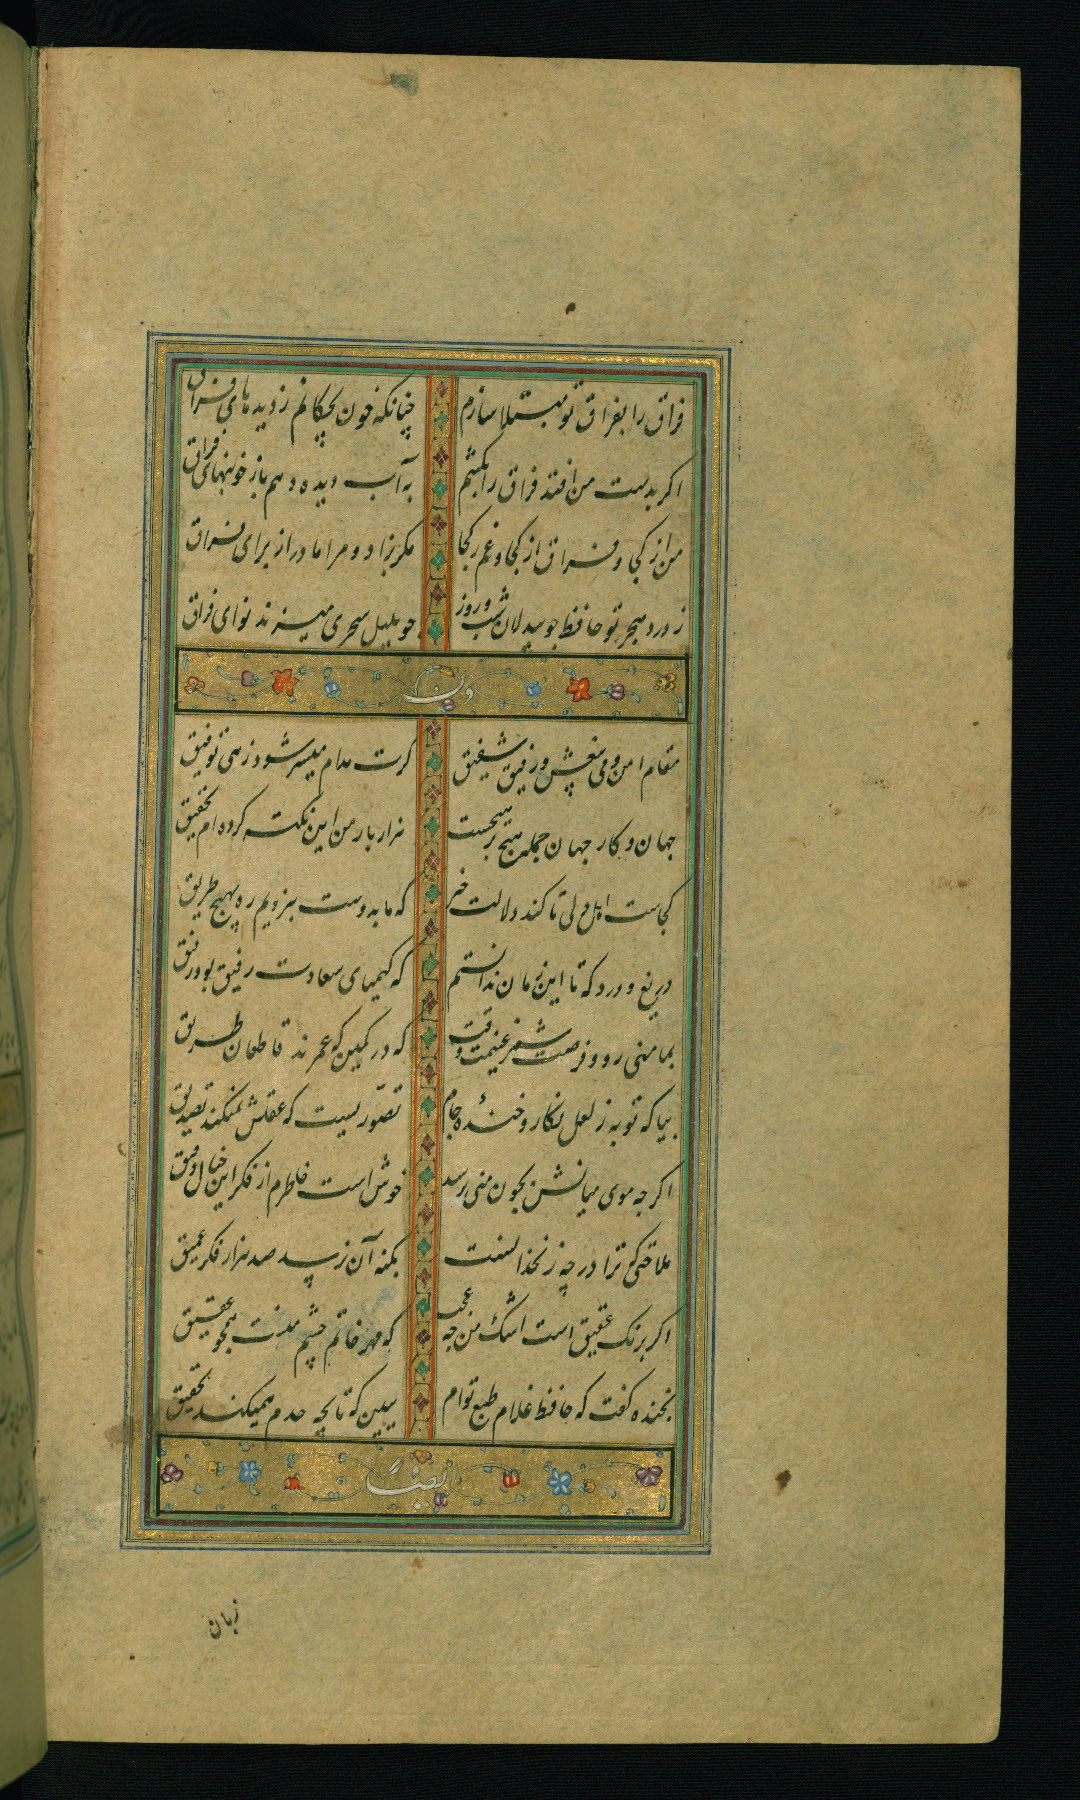 فراق را بفراق تو مبتلا سازم چنانکه خون بچکانم ز دیدهای فراق
اکر بدست من افتد فراق را بکشم به آب دیده دهم باز خونبهای فراق
من از کجا و فراق از کجا و غم ز کجا مکر بزاد مرا مادر از برای فراق
ز درد هجر تو حافظ جو بیدلان شب و روز جو بلبل سحری میزند نوای فراق
مقام امن و می بیغش و رفیق شفیق کرت مدام میسر شود زهی توفیق
جهان و کار جهان جمله هیچ بر هیچست هزار بار من این نکته کرده ام تحقیق
کجاست اهل دلی تا کند دلالت خیر که ما بدوست نبردیم ره بهیج طریق
دریغ و درد که تا این زمان ندانستم که کیمیای سعادت رفیق بود رفیق
بمامنی رو و فرصت شمر غنیمت وقت که در کمین که عمرند قاطعان طریق
بیا که توبه ز لعل نکار و خنده جام تصوریست که عقلش نمیکند تصدیق
اکر جه موی میانش بجون منی نرسد خوش است خاطرم از فکر این خیال دقیق
حلاوتی که ترا در چه زنخدانست بکنه آن نرسد صد هزار فکر عمیق
اکر برنک عقیق است اشک من جه عجب که مهر خاتم چشم منست همجو عقیق
بخنده کفت که حافظ غلام طبع توام ببین که تا بچه حدم همیکند تحقیق
زبان